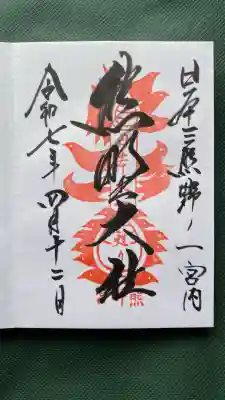 日本三熊野ノ一宮内
熊野大社
令和七年四月十二日